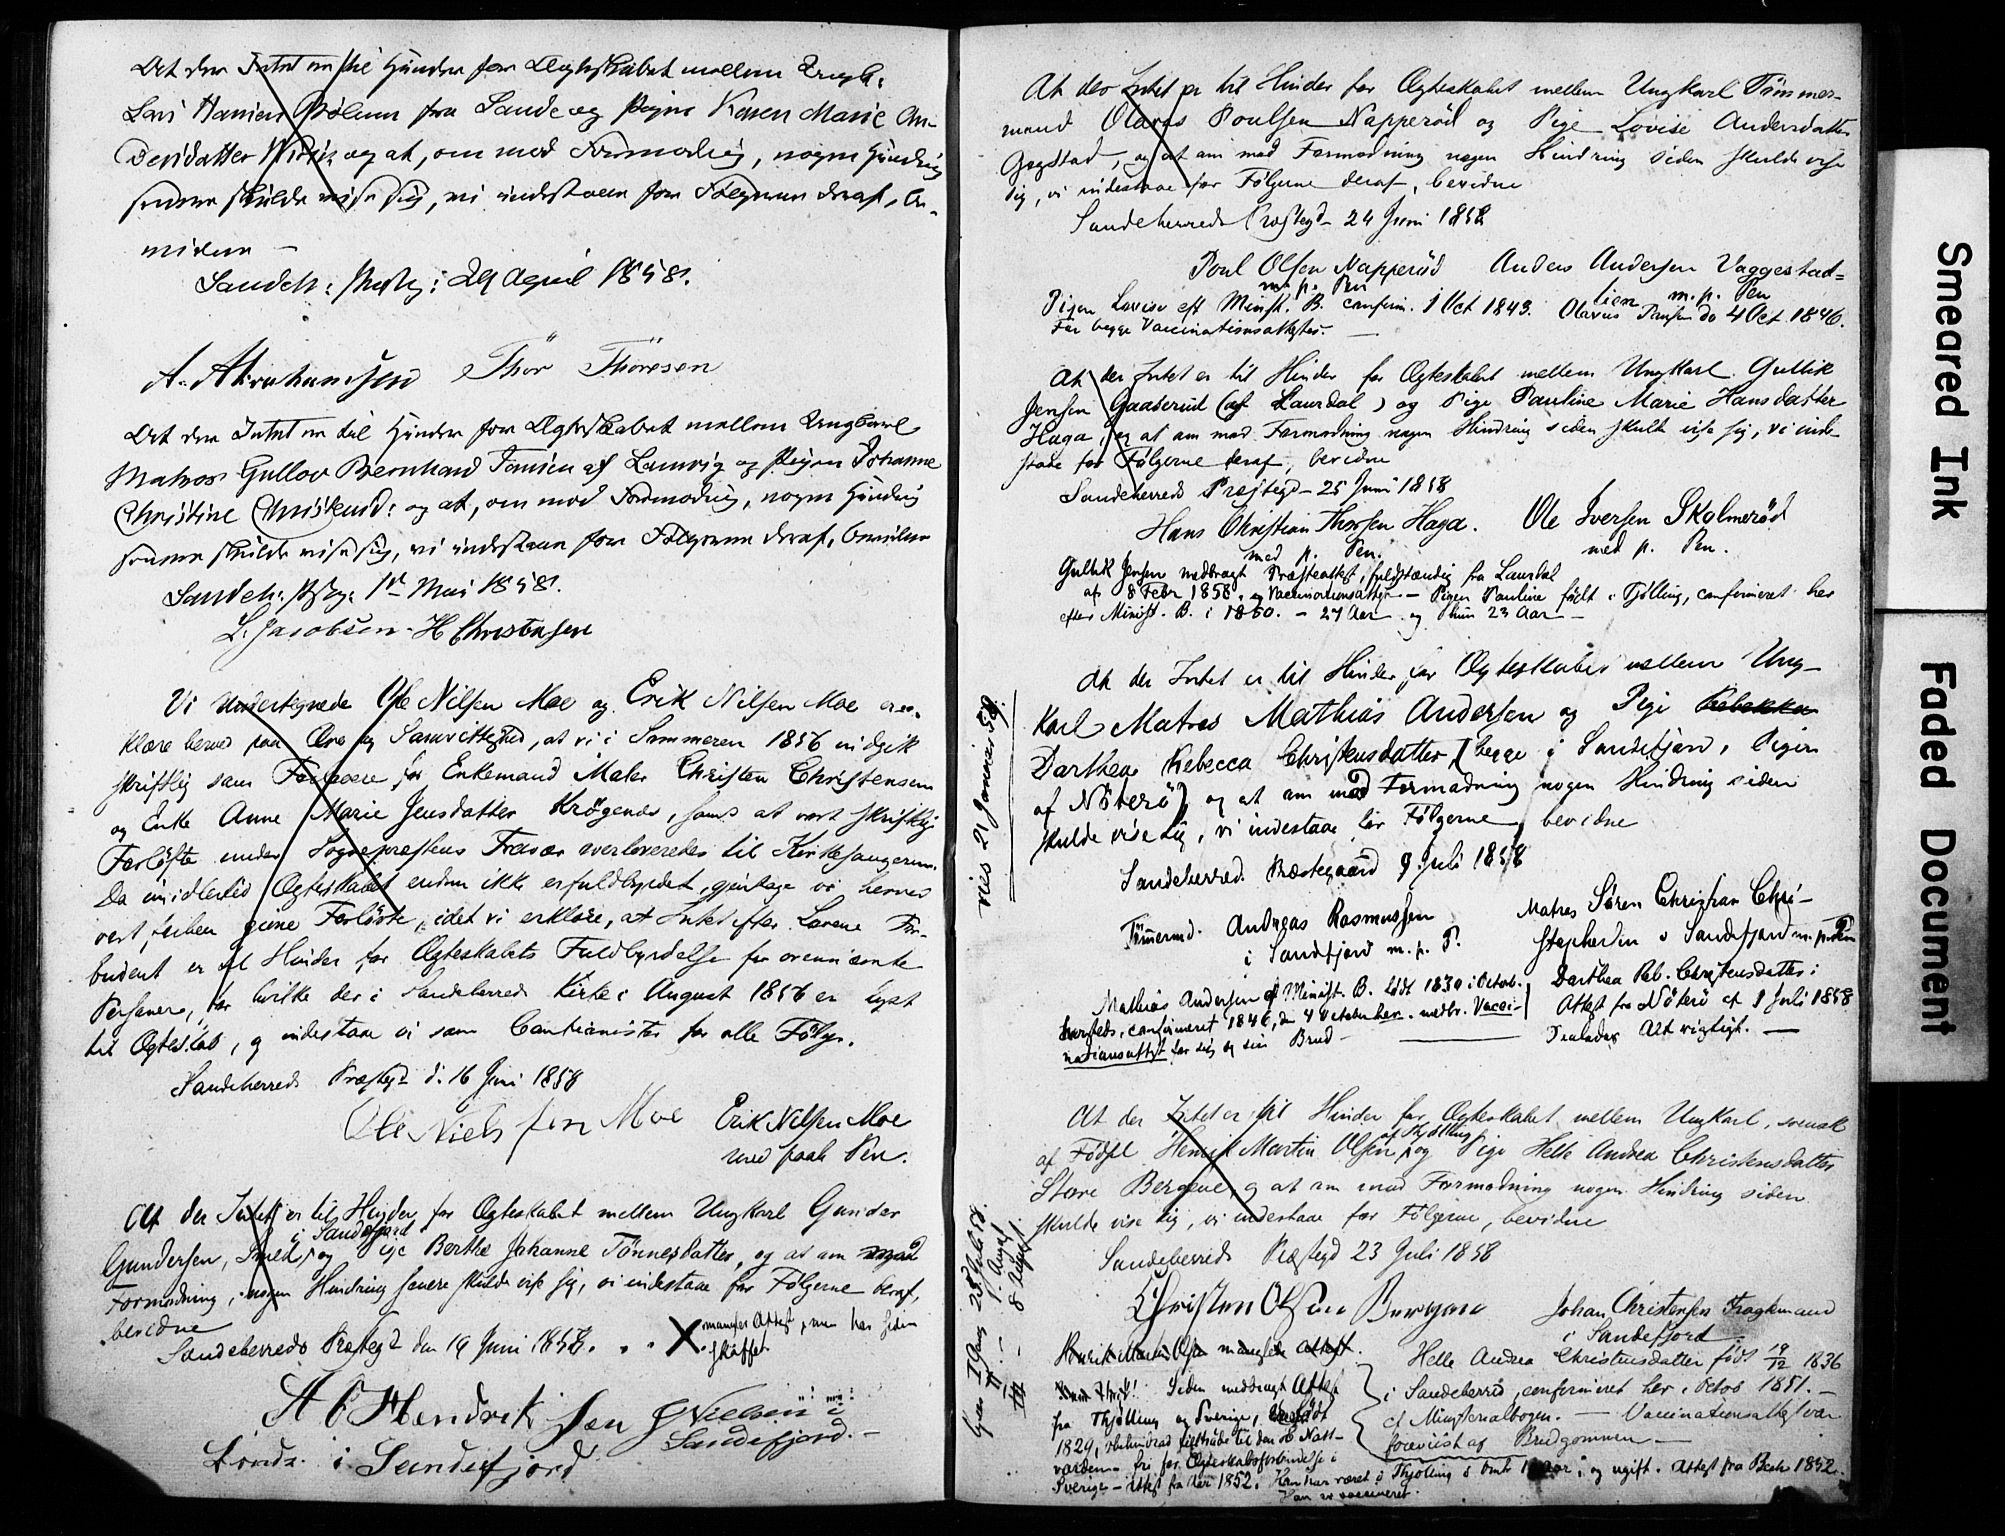 At der Intet er til Hinder for Ægteskabet mellem Ungk:
Lars Hansen fra Sande og Pigen Karen Marie An-
dersdatter og at, om mod Formodning, nogen Hindring
senere skulde vise sig, vi indestaae for Følgerne deraf, be-
vidne —
Sandeh: Præstg: 29 April 1858.
A. Abrahamsen Thor Thoresen
At der Intet er til Hinder for Ægteskabet mellem Ungkarl
Matros Gullov Bernhard Jansen af Laurvig og Pigen Johanne
Christine Christensd: og at, om mod Formodning, nogen Hindring
senere skulde vise sig, vi indestaae for Følgerne deraf, bevidne
Sandeh: Præstg: 1st Mai 1858.
L. Jacobsen. H Christensen
Vi undertegnede Ole Nilsen Moe og Erik Nilsen Moe er-
klære herved paa Ære og Samvittighed, at vi i Sommeren 1856 indgik
skriftlig som Forlovere for Enkemand Maler Christen Christensen
og Enke Anne Marie Jensdatter Krøgenes, samt at vort skriftlige
Forløfte under Sognepræstens Fravær overleveredes til Kirkesangeren.
Da imidlertid Ægteskabet endnu ikke er fuldbyrdet, gjentage vi herved
vort givne Forløfte, idet vi erklære, at Intet efter Lovene For-
budent er til Hinder for Ægteskabets Fuldbyrdelse for ovennævnte
Personer, for hvilke der i Sandeherreds Kirke i August 1856 er lyst
til Ægteskab, og indestaae vi som Cautionister for alle Følger.
Sandeherreds Præstegd d. 16 Juni 1858
Ole Nielssen Moe Erik Nilsen Moe
med paah Pen.
At der Intet er til Hinder for Ægteskabet mellem Ungkarl Gunder
i Sandefjord
Gundersen, Smed, og Pige Berthe Johanne Tønnesdatter, og at om mod
Formodning, nogen Hindring senere skulde vise sig, vi indestaae for Følgerne deraf,
bevidne
Sandeherreds Præstegd den 19 Juni 1858. . . X mangler Attest, men har siden
skaffet.
A O Hendriksen Nielsen i
Sandefjord. —
i Sandefjord
At der Intet er til Hinder for Ægteskabet mellem Ungkarl Tømmer-
mand Olavus Poulsen Napperød og Pige Lovise Andersdatter
Gogstad, og at om mod Formodning nogen Hindring siden skulde vise
sig, vi indestaae for Følgerne deraf, bevidne
Sandeherreds Præstegd 24 Juni 1858
Poul Olsen Napperød Anders Andersen Vaggestad=
m. p. Pen lien m. p. Pen
Pigen Lovise eft Minist. B. confirm. 1 Oct 1843. Olavus Paulsen do 4 Oct. 1846.
For begge Vaccinationsattester. —
At der Intet er til Hinder for Ægteskabet mellem Ungkarl Gullik
Jensen Gaaserud (af Laurdal) og Pige Pauline Marie Hansdatter
Haga, og at om mod Formodning nogen Hindring siden skulde vise sig, vi inde
staae for Følgerne deraf, bevidne
Sandeherreds Præstegd — 25 Juni 1858
Hans Christian Thorsen Haga. Ole Iversen Skolmerød
med p. Pen. med p. Pen.
Gullik Jensen medbragt Præsteattest, fuldstændig fra Laurdal
af 8 Febr 1858, og Vaccinationsattest — Pigen Pauline født i Tjølling, confirmeret her
efter Minist. B. i 1850. — 27 Aar og Hun 23 Aar —
At der Intet er til Hinder for Ægteskabet mellem Ung-
karl Matros Mathias Andersen og Pige Rebekka
Dorthea Rebecca Christensdatter, (begge i Sandefjord, Pigen
af Nøterø) og at om mod Formodning nogen Hindring siden
skulde vise sig, vi indestaae for Følgerne, bevidne
Sandeherred Præstegaard 9 Juli 1858
Tømmermd. Andreas Rasmussen Matros Søren Christian Chri-
i Sandefjord m. p. P. stephersen i Sandefjord m. p. Pen
Mathias Andersen ef Minist. B. født 1830 i Octob. Dorthea Reb. Christensdatter i
confirmeret 1846, den 4 October her. medbr. Vacci- Attest fra Nøterø af 8 Juli 1858
nationsattest for sig og sin Brud — Alt rigtigt. —
viet 21 Januar 59.
At der Intet er til Hinder for Ægteskabet mellem Ungkarl, svensk
af Tjølling
af Fødsel Henrik Martin Olsen, og Pige Helle Andrea Christensdatter
Store Bergene, og at om mod Formodning nogen Hindring siden
skulde vise sig, vi indestaae for Følgerne, bevidne
Sandeherreds Præstegd 23 Juli 1858
Christen Olsen Bergene Johan Christensen Fragtemand
i Sandefjord
Henrik Martin Olsen manglede Attest. Helle Andrea Christensdatter født 19/12 1836
Siden medbragt Attest i Sandeherred, confirmeret her i Octob 1851. —
fra Thjølling og Sverige, født ef Ministerialbogen. — Vaccinationsattest var
1829, til den h. Nat- foreviist af Brudgommen —
verden — fri for Ægteskabsforbindelse i
Sverige — Attest fra Aar 1852. Han har været i Thjølling i omtr Aar, og ugift. Attest fra Beck 1852.
Han er vaccineret.
I Gang 25 Juli 58.
II — 1 August
III — 8 August.
Smeared Ink
Faded Document